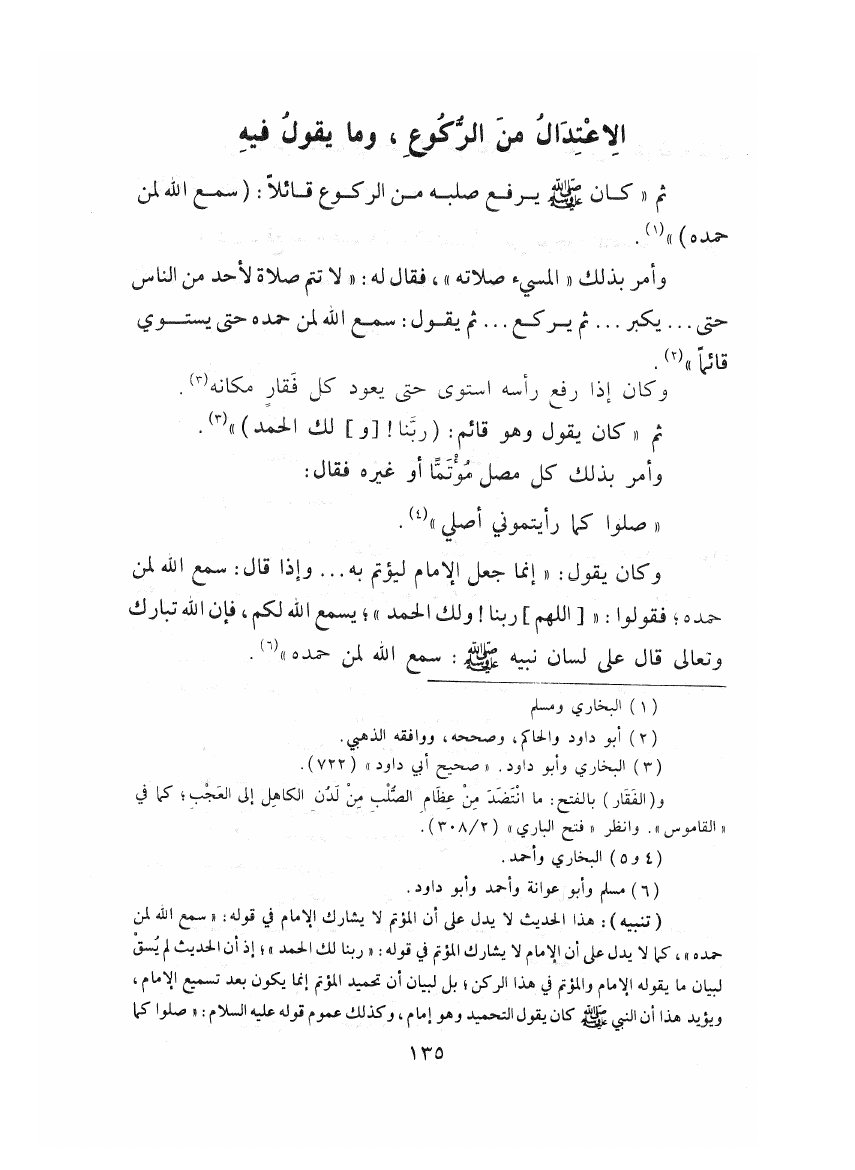 الِاعْتِدَالُ منَ الرُّكُوعِ ، وما يقولُ فيهِ
ثم « كـان ﷺ يـرفـع صلبـه مـن الركـوع قـائلاً : ( سمـع الله لمن
حمده ) »(١) .
وأمر بذلك « المسيء صلاته » ، فقال له : « لا تتم صلاة لأحد من الناس
حتى ... يكبر ... ثم يـركـع ... ثم يقـول : سمـع الله لمن حمده حتى يستـــوي
قائماً »(٢) .
وكان إذا رفع رأسه استوى حتى يعود كل فَقارٍ مكانه(٣) .
ثم « كان يقول وهو قائم : ( ربَّنا ! [ و ] لك الحمد ) »(٣) .
وأمر بذلك كل مصل مُؤْتَمًّا أو غيره فقال :
« صلوا كما رأيتموني أصلي »(٤) .
وكان يقول : « إنما جعل الإمام ليؤتم به ... وإذا قال : سمع الله لمن
حمده ؛ فقولوا : « [ اللهم ] ربنا ! ولك الحمد » ؛ يسمع الله لكم ، فإن الله تبارك
وتعالى قال على لسان نبيه ﷺ : سمع الله لمن حمده »(٦) .
( ١ ) البخاري ومسلم
( ٢ ) أبو داود والحاكم ، وصححه ، ووافقه الذهبي .
( ٣ ) البخاري وأبو داود . « صحيح أبي داود » ( ٧٢٢ ) .
و ( الفَقَار ) بالفتح : ما انْتَضَدَ مِنْ عِظَامِ الصُّلْبِ مِنْ لَدُنِ الكاهِلِ إلى العَجْبِ ؛ كما في
« القاموس » . وانظر « فتح الباري » ( ٣٠٨/٢ ) .
( ٤ و٥ ) البخاري وأحمد .
( ٦ ) مسلم وأبو عوانة وأحمد وأبو داود .
( تنبيه ) : هذا الحديث لا يدل على أن المؤتم لا يشارك الإمام في قوله : « سمع الله لمن
حمده » ، كما لا يدل على أن الإمام لا يشارك المؤتم في قوله : « ربنا لك الحمد » ؛ إذ أن الحديث لم يُسَقْ
لبيان ما يقوله الإمام والمؤتم في هذا الركن ؛ بل لبيان أن تحميد المؤتم إنما يكون بعد تسميع الإمام ،
ويؤيد هذا أن النبي ﷺ كان يقول التحميد وهو إمام ، وكذلك عموم قوله عليه السلام : « صلوا كما
١٣٥